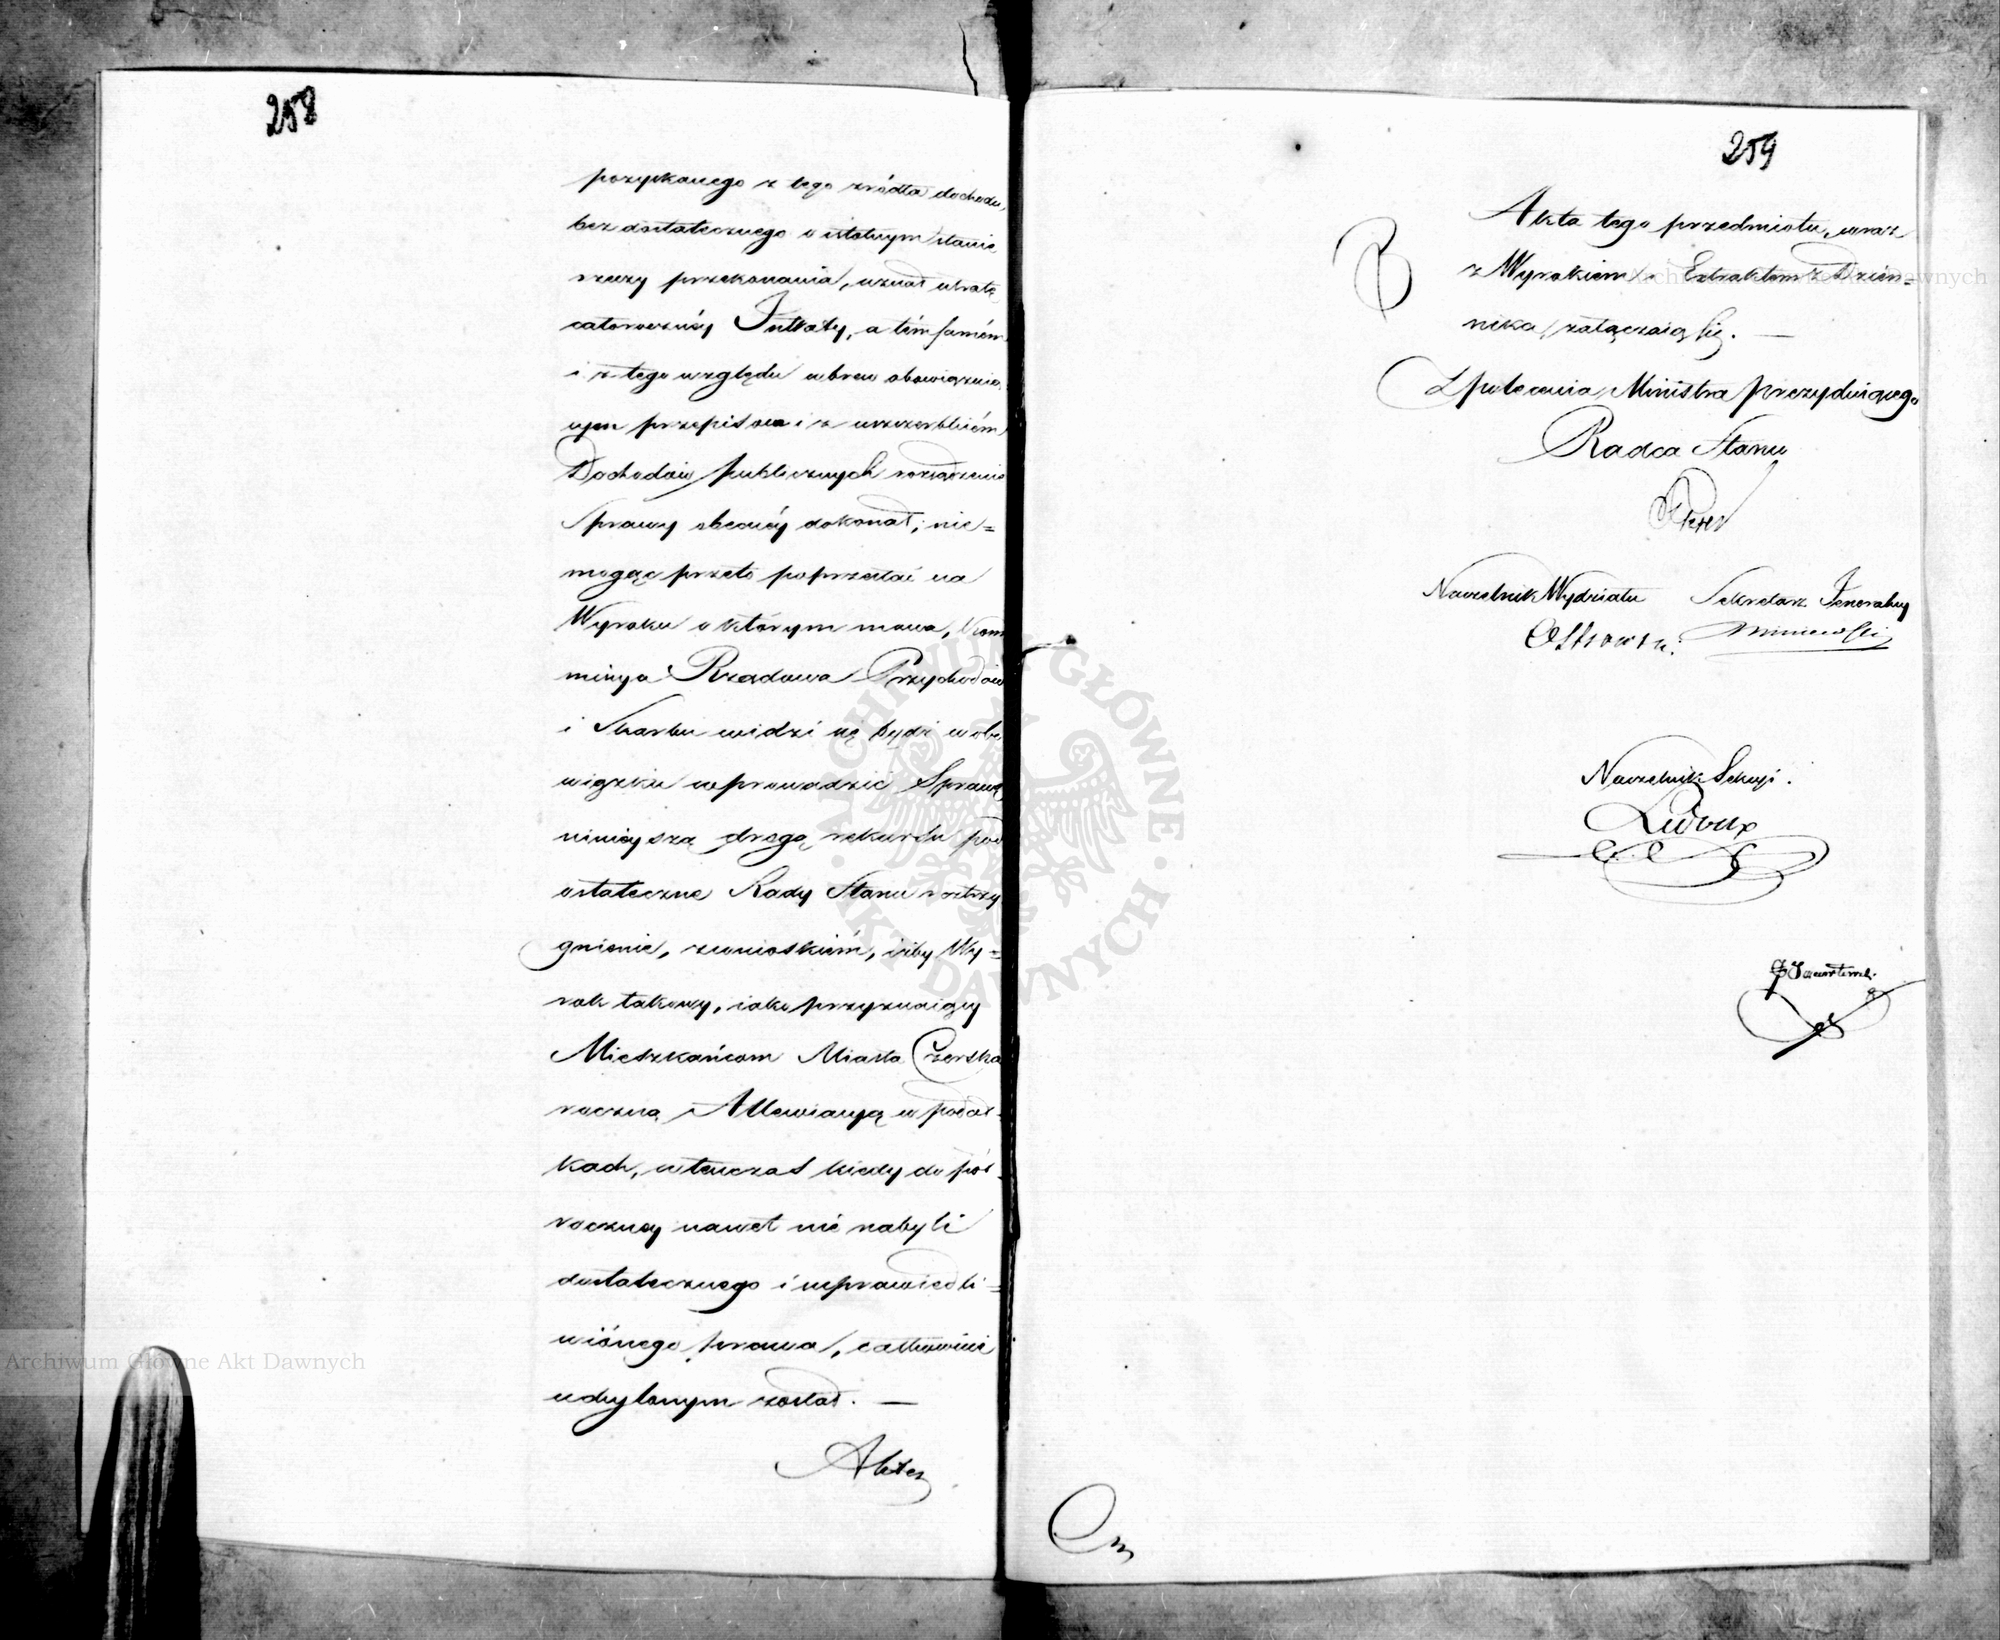 258
pozyskanego z tego źródła dochodu,
bez dostatecznego o istotnym stanie
rzeczy przekonania, uznał utratę
całoroczney Intraty, a tém samém
i z tego względu wbrew obowiązuią-
cym przepisom i z uszczerbkiem
Dochodów publicznych rozsądzenia
Sprawy obecney dokonał; nie=
mogąc przeto poprzestać na
Wyroku o którym mowa, Kom
missya Rządowa Przychodów
i Skarbu widzi się bydź w obo
wiązku wprowadzić Sprawę
ninieyszą drogą rekursu pod
ostateczne Rady Stanu roztrzy
gnienie, z wnioskiem, iżby Wy=
rok takowy, iako przyznaiący
Mieszkańcom Miasta Czerska
roczną Allewiacyą w podat-
kach, wtenczas kiedy do pół-
roczney nawet nie nabyli
dostatecznego i usprawiedli=
wionego prawa, całkowicie
uchylonym został. —
Akta
259
Akta tego przedmiotu, wraz
z Wyrokiem i Extraktem z Dzien=
nika, załączaią się. —
Z polecenia Ministra Prezyduiącego
Radca Stanu
Naczelnik Wydziału Sekretarz Jeneralny
Ostrowski
Naczelnik Sekcyi.
Ledoux
ARCHIWUM GŁÓWNE AKT DAWNYCH
Archiwum Główne Akt Dawnych
Archiwum Główne Akt Dawnych